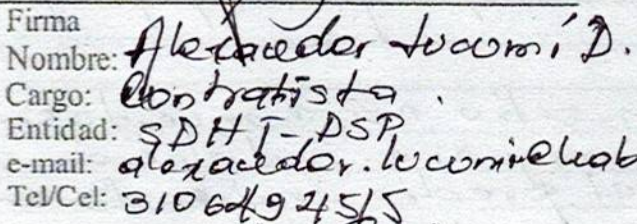 Firma
Nombre: Alexander Lucumí D.
Cargo: Contratista.
Entidad: SDHT-DSP
e-mail: alexander.lucumi@hab
Tel/Cel: